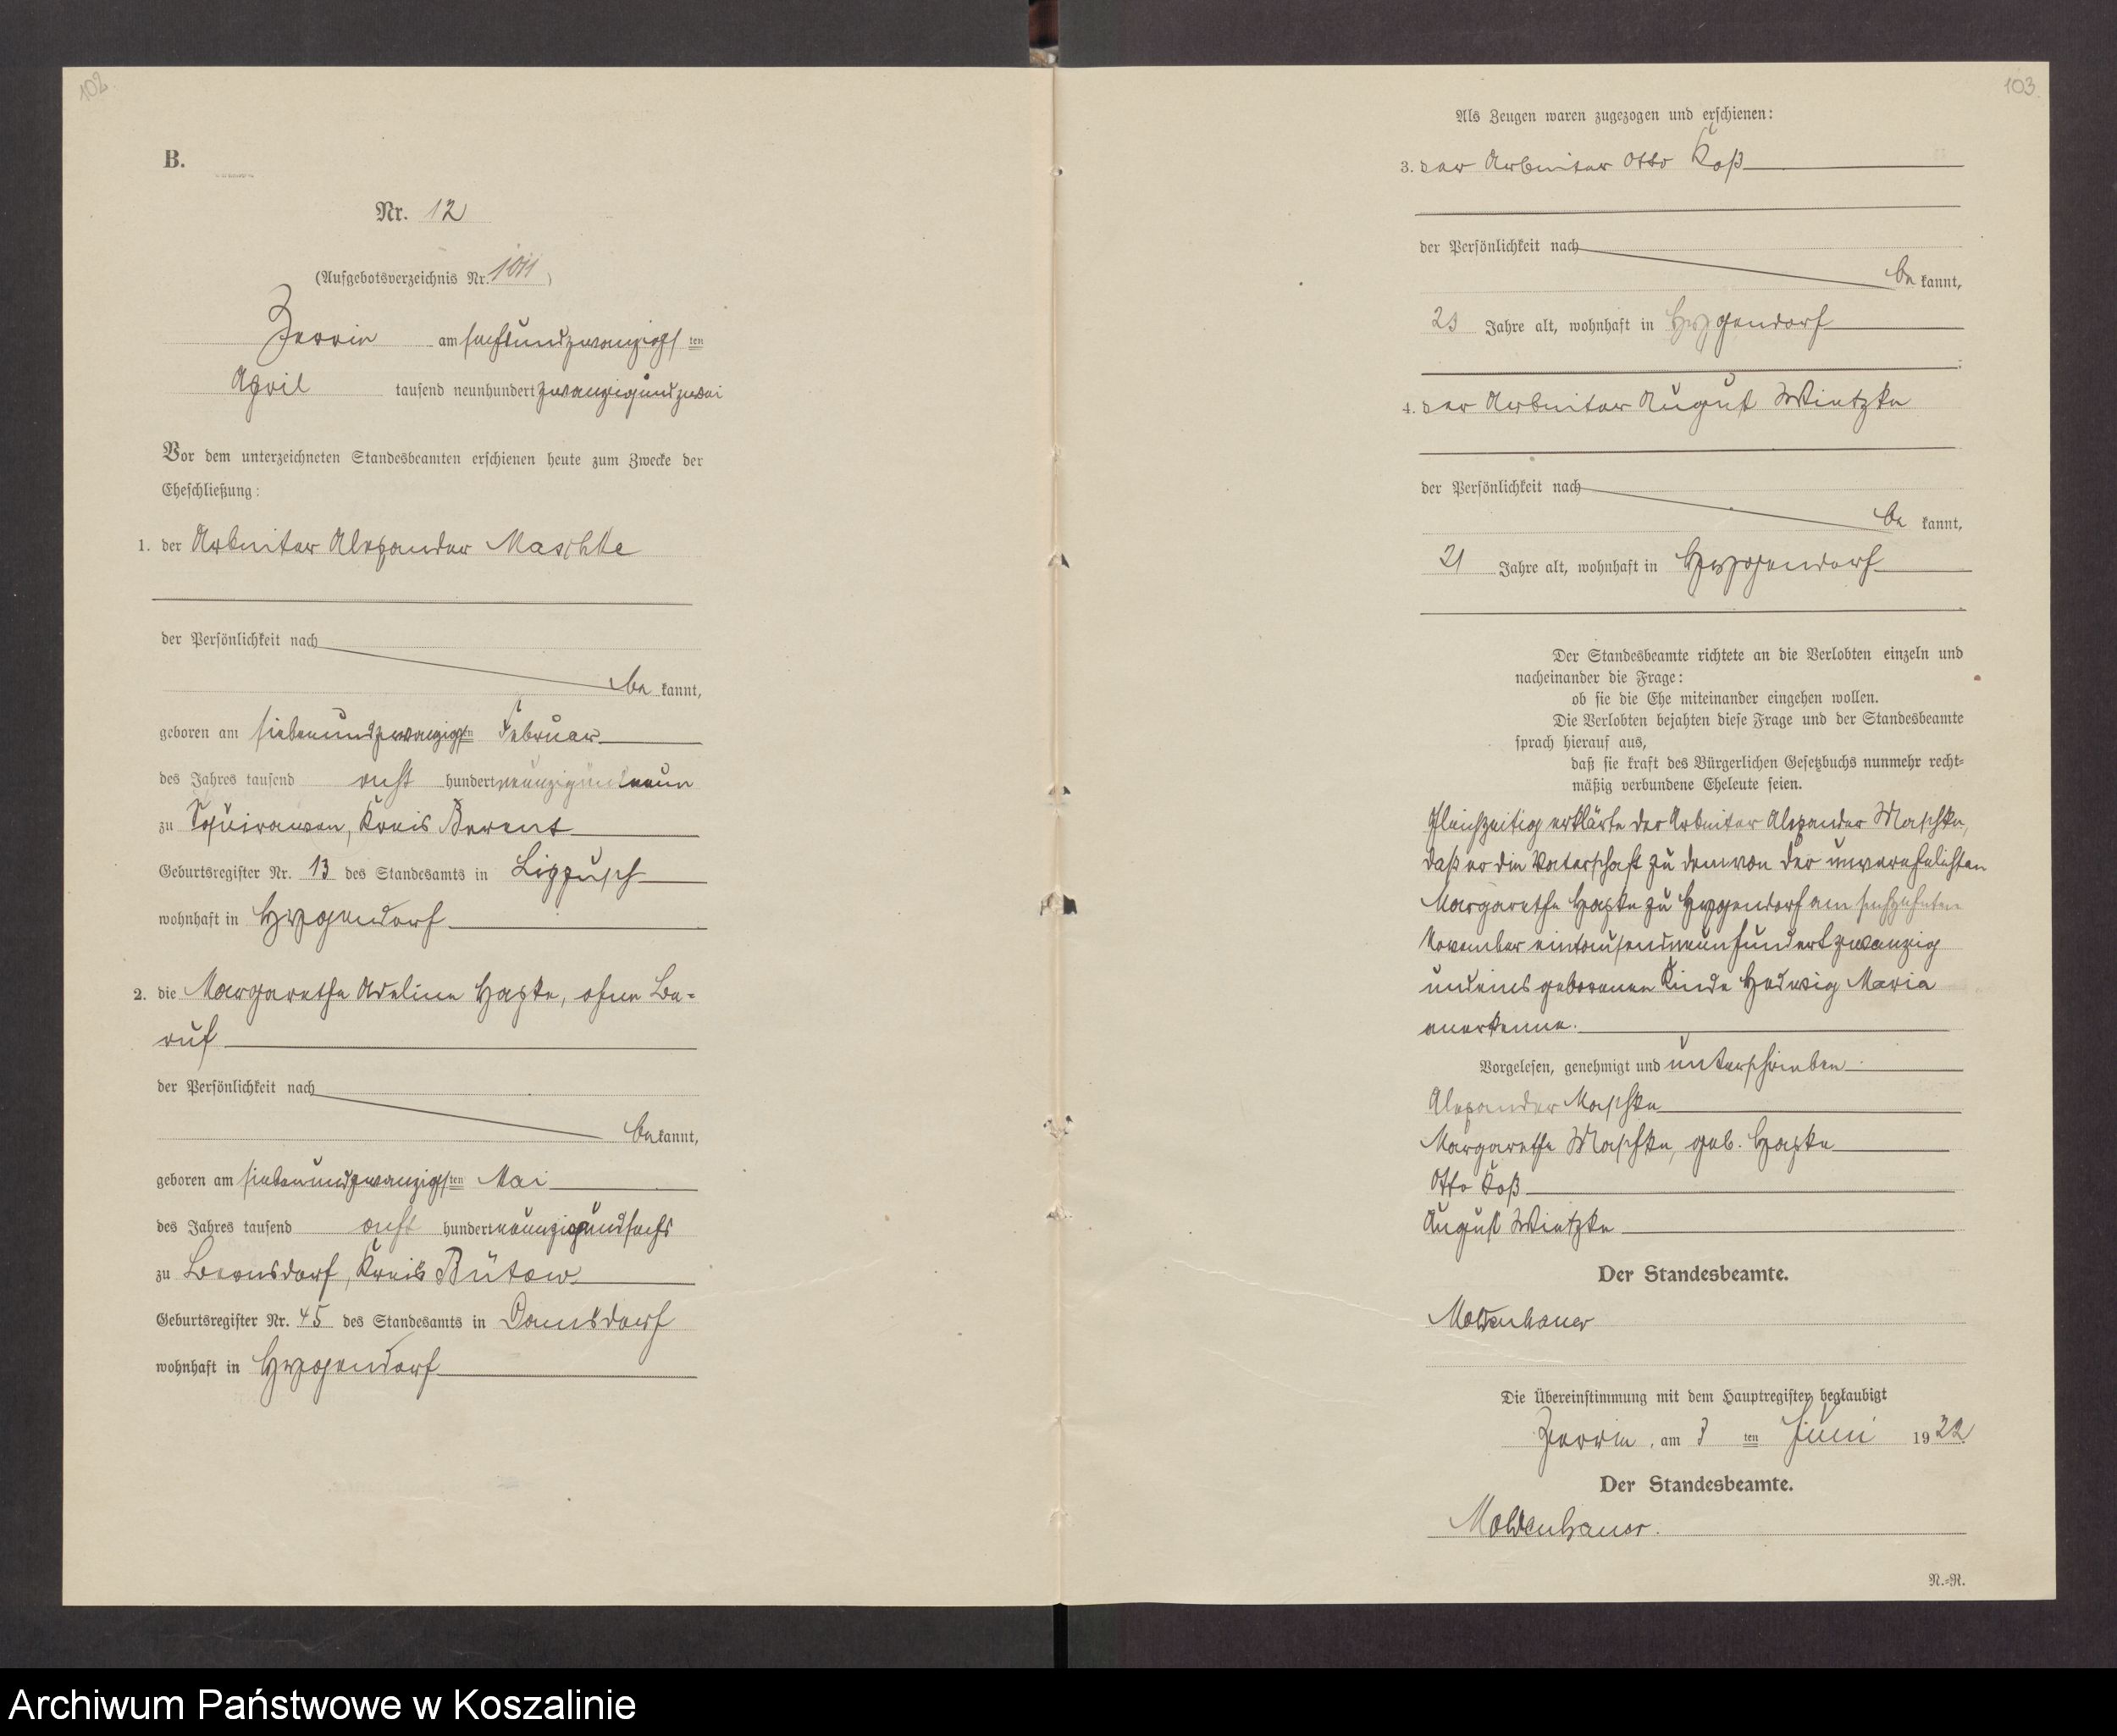 102
B.
Nr. 12
(Aufgebotsverzeichnis Nr. )
Zerrin am sechsundzwanzigsten
April tausend neunhundert zwanzigundzwei
Vor dem unterzeichneten Standesbeamten erschienen heute zum Zwecke der
Eheschließung:
1. der Arbeiter Alexander Maschke
der Persönlichkeit nach
be kannt,
geboren am siebenundzwanzigsten Februar
des Jahres tausend acht hundert neunzigundneun
zu Squirawen, Kreis Berent
Geburtsregister Nr. 13 des Standesamts in Lippusch
wohnhaft in Hygendorf
2. die Margarethe Adeline Hapke, ohne Be-
ruf
der Persönlichkeit nach
be kannt,
geboren am siebenundzwanzigsten Mai
des Jahres tausend acht hundert neunzigundsechs
zu Bernsdorf, Kreis Bütow
Geburtsregister Nr. 45 des Standesamts in Damsdorf
wohnhaft in Hygendorf
103
Als Zeugen waren zugezogen und erschienen:
3. der Arbeiter Otto Koß
der Persönlichkeit nach
be kannt,
Jahre alt, wohnhaft in Hygendorf
4. der Arbeiter August Wietzke
der Persönlichkeit nach
be kannt,
21 Jahre alt, wohnhaft in Hygendorf
Der Standesbeamte richtete an die Verlobten einzeln und
nacheinander die Frage:
ob sie die Ehe miteinander eingehen wollen.
Die Verlobten bejahten diese Frage und der Standesbeamte
sprach hierauf aus,
daß sie kraft des Bürgerlichen Gesetzbuchs nunmehr recht-
mäßig verbundene Eheleute seien.
Gleichzeitig erklärte der Arbeiter Alexander Maschke,
daß er die Vaterschaft zu dem von der unverehelichten
Margarethe Hapke zu Hygendorf am sechzehnten
November eintausendneunhundertzwanzig
undeins geborenen Kinde Hedwig Maria
anerkenne.
Vorgelesen, genehmigt und unterschrieben
Alexander Maschke
Margarethe Maschke, geb. Hapke
Otto Koß
August Wietzke
Der Standesbeamte.
Moldenhauer
Die Übereinstimmung mit dem Hauptregister beglaubigt
Zerrin, am 3 ten Juni 1922
Der Standesbeamte.
Moldenhauer.
N.-R.
Archiwum Państwowe w Koszalinie